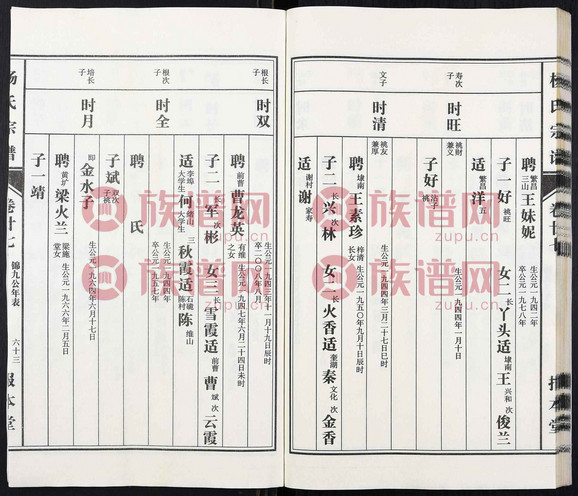 杨氏宗谱
寿次子
时旺
桃财兼义
生公元一九四二年
卒公元一九七八年
聘
繁昌三山
王妹妮
子一好
桃旺
女二
长
丫头适
埭南
王
兴和
次
俊兰
适
繁昌
洋
五
子好
桃浩
文子
时清
桃友兼厚
生公元一九四四年一月十日
聘
埭南
王素珍
梓清长女
生公元一九五〇年九月十七日巳时
子二
长
兴
次
林
女二
长
火香适
奎湖
秦
文化
次
金香
适
谢村
谢
家寿
根长子
时双
生公元一九四三年十一月十九日辰时
卒二〇〇八年八月
聘
前曹
曹龙英
有维之女
生公元一九四七年六月二十四日未时
子二
长
军
次
彬
女三
长
雪霞适
前曹
曹
斌
次
云霞
适
李埠大学生
何
绪山大学生
三
秋霞适
石硊陈村
陈
维山
根次子
时全
生公元一九四四年
卒公元一九五七年
聘
氏
子斌
双次子桃
培长子
时月
即
金水子
生公元一九六四年六月十七日
聘
黄圹
梁火兰
梁施堂女
生公元一九六六年二月五日
子一靖
杨氏宗谱
卷廿七
锦九公年表
六十三
报本堂